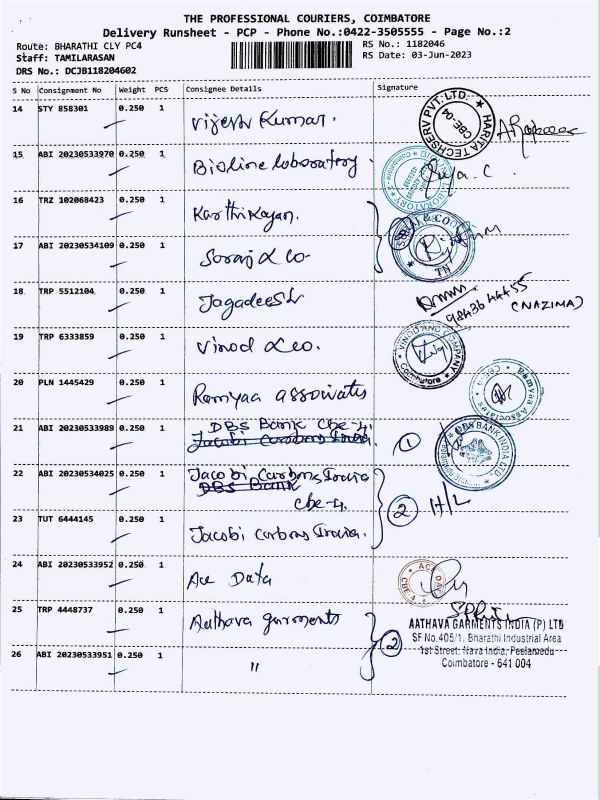 THE PROFESSIONAL COURIERS, COIMBATORE
Delivery Runsheet - PCP - Phone No.:0422-3505555 - Page No.:2
Route: BHARATHI CLY PC4
RS No.: 1182046
Staff: TAMILARASAN
RS Date: 03-Jun-2023
DRS No.: DCJB118204602
S No Consignment No Weight PCS Consignee Details Signature
14 STY 858301 0.250 1 Vijesh Kumar.
HARITA TECHSERV PVT. LTD. CBE-04
15 ABI 20230533970 0.250 1 Bioline laboratory
16 TRZ 102068423 0.250 1 Karthikayan.
17 ABI 20230534109 0.250 1 Soraj & Co-
18 TRP 5512104 0.250 1 Jagadeesh
98436 44455
(NAZIMA)
19 TRP 6333859 0.250 1 Vinod & co.
VINOD AND COMPANY Coimbatore
20 PLN 1445429 0.250 1 Ramyaa associates
Ramyaa Associates
21 ABI 20230533989 0.250 1 DBS Bank Cbe-4.
Jacobi Carbons India.
1
DBS BANK INDIA LTD.
22 ABI 20230534025 0.250 1 Jacobi Carbons India
DBS Bank
Cbe-4.
2 H/L
23 TUT 6444145 0.250 1 Jacobi carbons India.
24 ABI 20230533952 0.250 1 Ace Data
ACE DATA CBE-4
25 TRP 4448737 0.250 1 Aathava garments
2
AATHAVA GARMENTS INDIA (P) LTD
SF No.405/1, Bharathi Industrial Area
1st Street, Nava India, Peelamedu
Coimbatore - 641 004
26 ABI 20230533951 0.250 1 "